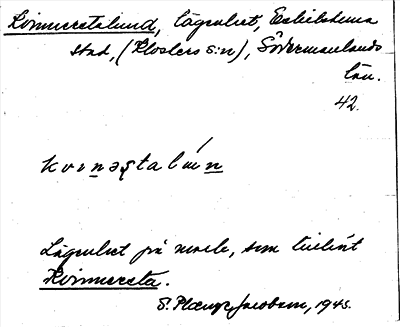 Kvinnerstalund, lägenhet, Eskilstuna
stad, (Klosters s:n), Södermanlands
län.
42.
kvınəştalún
Lägenhet på mark, som tillhört
Kvinnersta.
S. Jacobson, 1945.